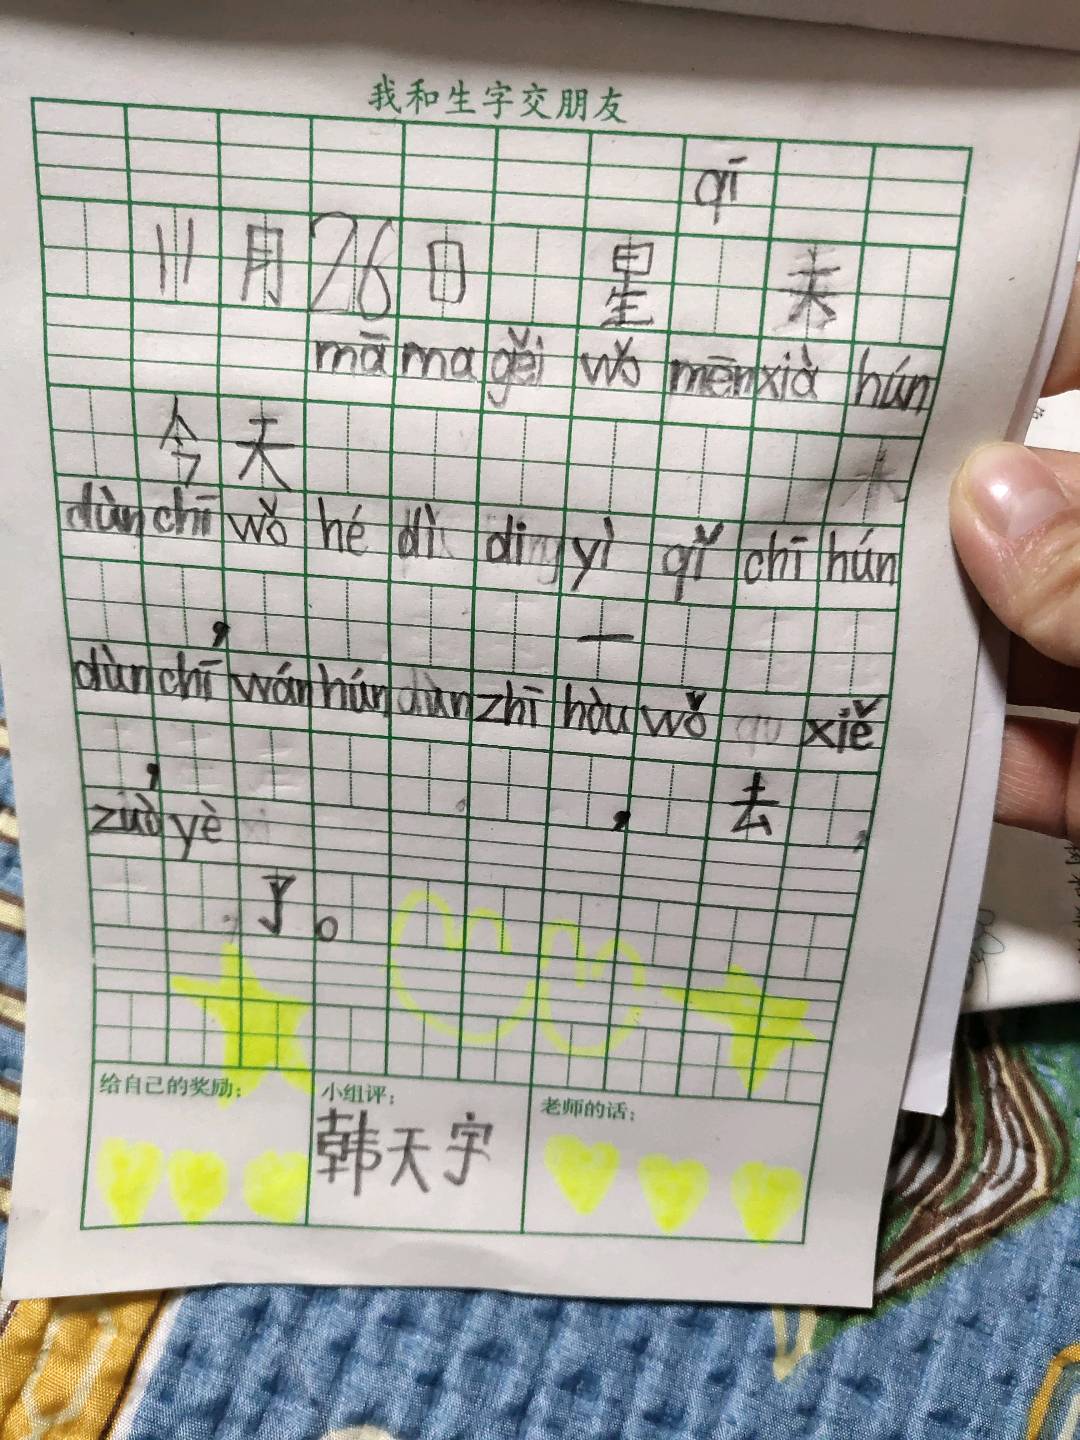 我和生字交朋友
qī
11月26日 星 天
mā ma gěi wǒ mēn xià hún
今天
dùn chī wǒ hé dì ding yì qǐ chī hún
， 一
dùn chī wán hún dùn zhī hòu wǒ xiě
， ， 去
zuò yè
了。
给自己的奖励： 小组评： 老师的话：
韩天宇